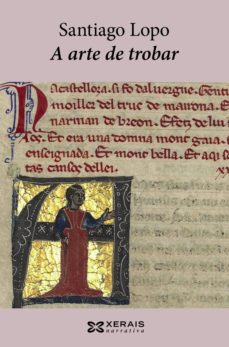 Santiago Lopo
A arte de trobar
Na castelloza. si fo daluergne. Gen
moiller del truc de mairona. E
narman de breon. E fez de lui
zos. Et era una domna mout gaia. E
enseignada. Et mout bella. Et aqi s
tas cansos dellei.
XERAIS
narrativa